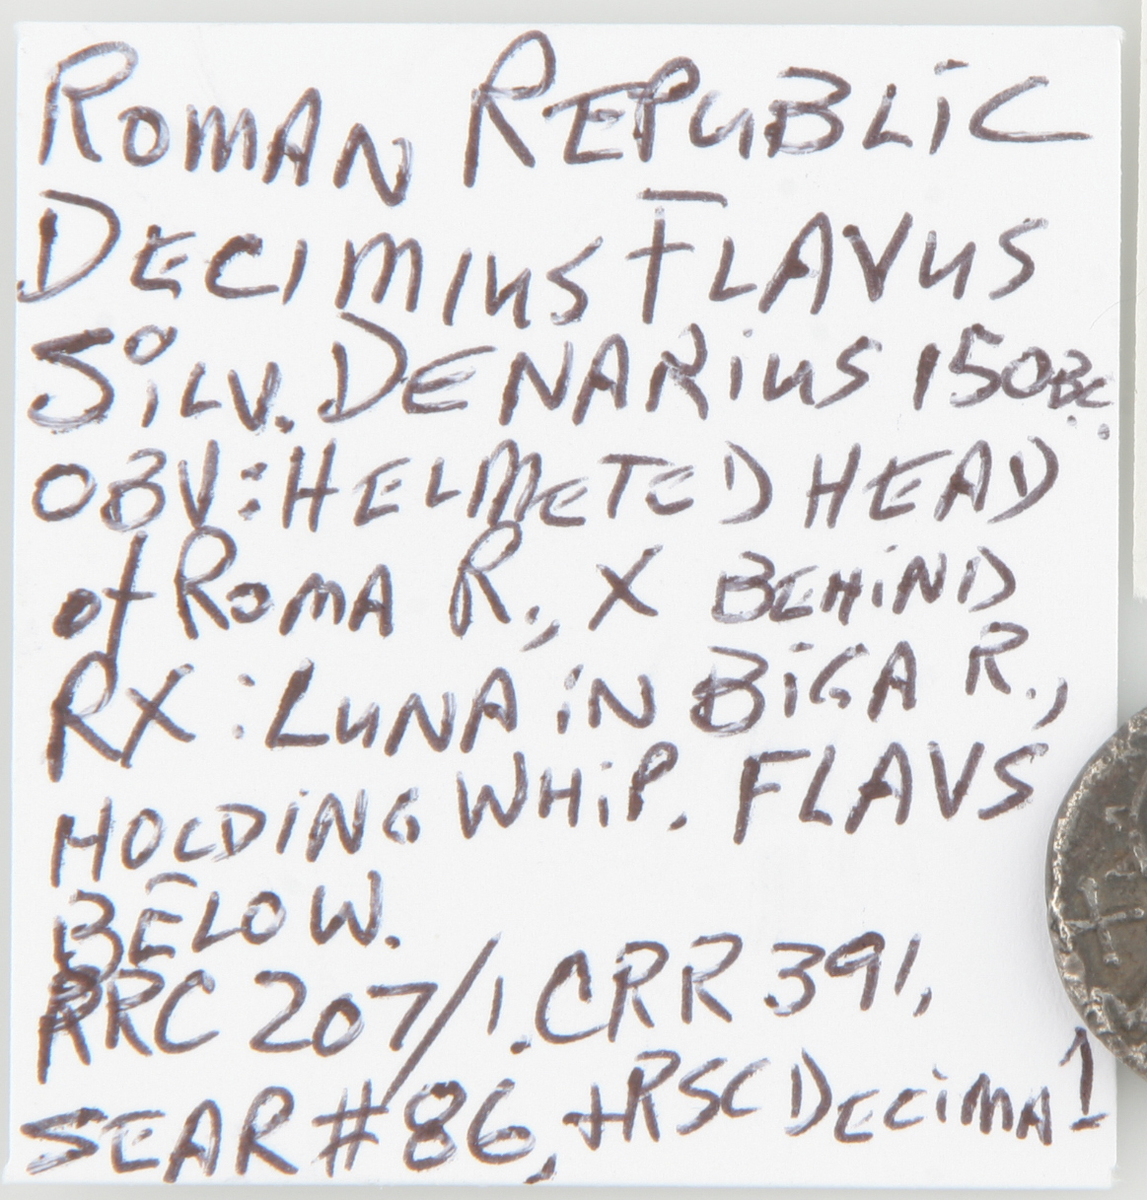 ROMAN REPUBLIC
DECIMIUS FLAVUS
SILV. DENARIUS 150BC.
OBV: HELMETED HEAD
of ROMA R., X BEHIND
RX: LUNA IN BIGA R.,
HOLDING WHIP. FLAVS
BELOW.
RRC 207/1. CRR 391,
SEAR #86, + RSC DECIMA 1